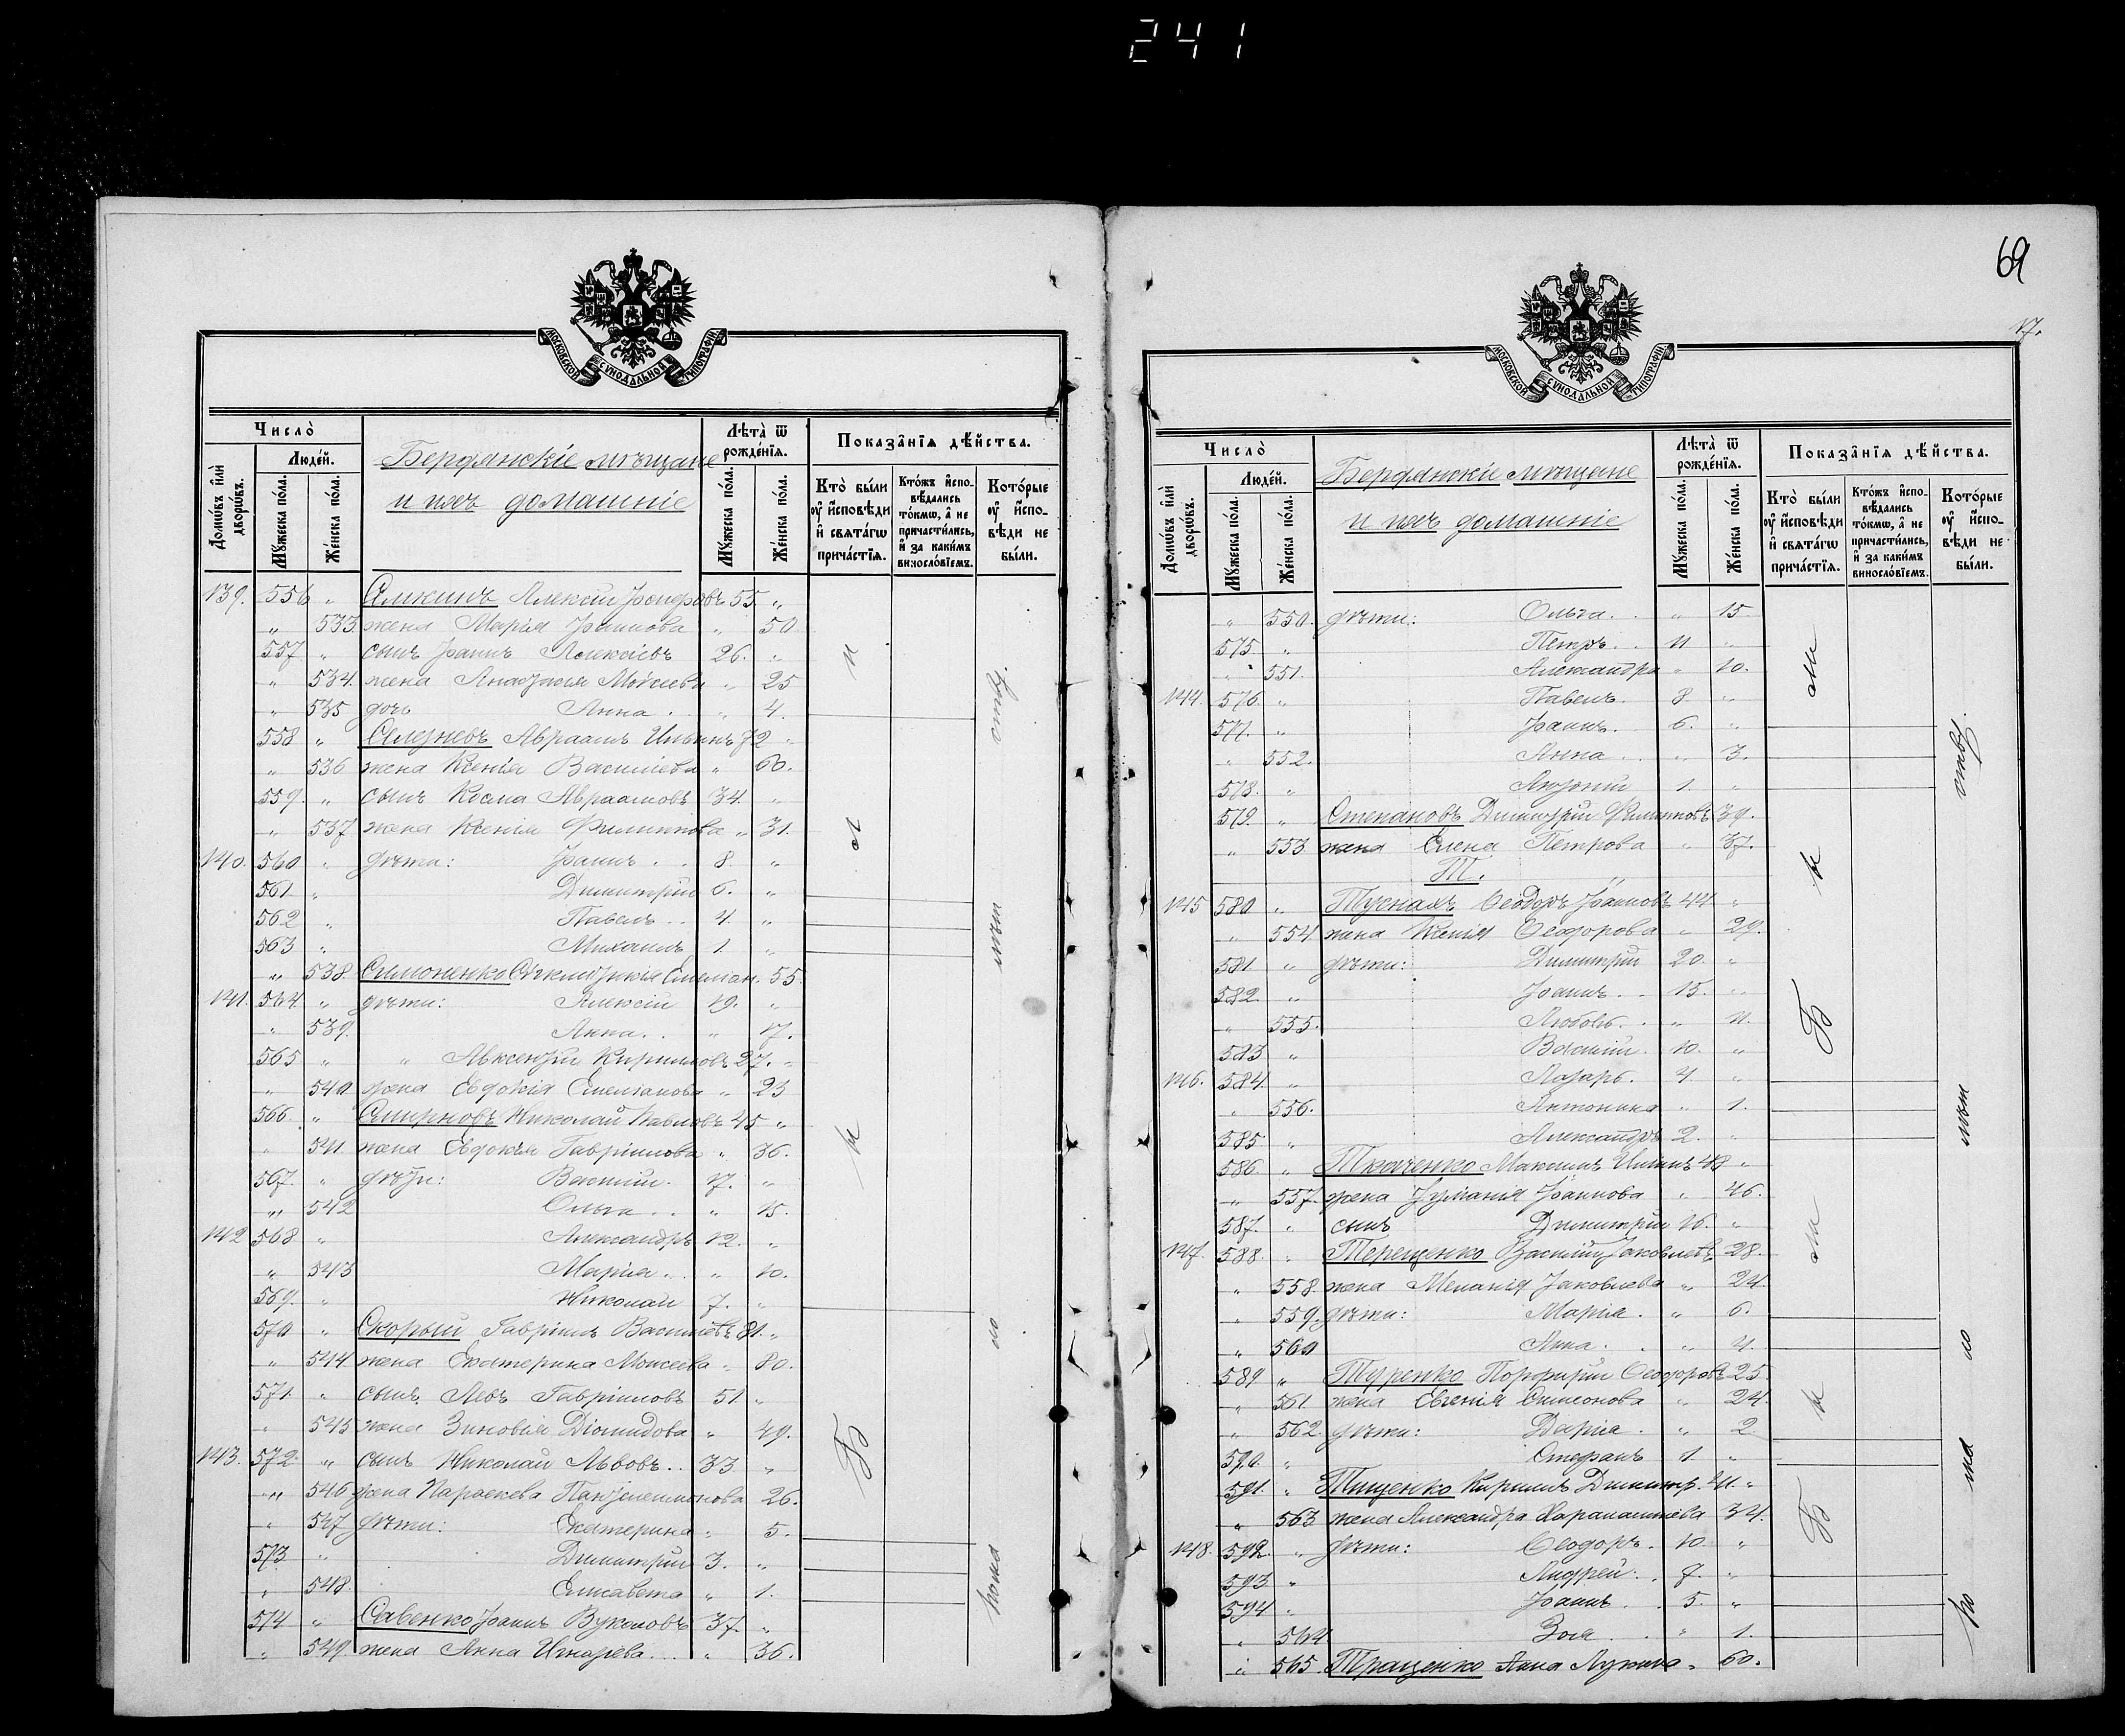 241
69
17.
МОСКОВСКОЙ СѴНОДАЛЬНОЙ ТИПОГРАФІИ
Число̀
Людей.
Домѡвъ и҆лѝ дворѡвъ.
Мꙋжеска по́ла.
Же́нска по́ла.
Бердянскіе мѣщане
и ихъ домашніе
Лѣта̀ ѿ рожде́нїя.
Мꙋжеска по́ла.
Же́нска по́ла.
Показа̑нїя дѣ́йства.
Кто̀ бы́ли ᲂу҆ и҆сповѣди и҆ свята́гѡ прича́стїя.
Кто́жъ и҆спо-вѣдались то́кмѡ, а҆ не причасти́лись, и҆ за каки́мъ винослові́емъ.
Кото́рые ᲂу҆ и҆спо-вѣди не бы́ли.
139. 556 " Алексій 55. "
" 533 жена Марія Іоаннова " 50
557 " сынъ Іоаннъ Алексіевъ 26. "
" 534. жена Анастасія Моисеева " 25
" 535 дочь Анна . " 4.
558 " Селезневъ Авраамъ Ильинъ 72 "
" 536 жена Ксенія Василіева " 60.
559. " сынъ Косма Авраамовъ 34. "
" 537 жена Ксенія Филиппова " 31.
140. 560 " дѣти: Іоаннъ . . 8. "
561. " Димитрій 6. "
562 " Павелъ . . 4. "
563 " Михаилъ 1. "
" 538. Симоненко 55.
141. 564. " дѣти: Алексій 19. "
" 539. Анна . . " 17.
565 " " Авксентій Кирилловъ 27. "
" 540 жена Евдокія Емеліанова " 23
566. " Смирновъ Николай Павловъ 45 "
" 541. жена Евдокія Гавріилова " 36.
567. " дѣти: Василій. 17. "
" 542 Ольга . . " 15.
142 568 " Александръ 12. "
" 543 Марія . . " 10.
569. " Николай 7. "
570 " Скорый Гавріилъ Василіевъ 81. "
" 544. жена Екатерина Моисеева " 80.
571. " сынъ Левъ Гавріиловъ 51. "
" 545 жена Зиновія Діомидова " 49.
143. 572. " сынъ Николай Львовъ . . 33 "
" 546 жена Параскева Пантелеимонова 26.
" 547 дѣти: Екатерина " 5.
573. " Димитрій 3. "
" 548. Елисавета " 1.
574 " Савенко Іоаннъ Вуколовъ 37. "
" 549. жена Анна Игнатіева . . . " 36.
МОСКОВСКОЙ СѴНОДАЛЬНОЙ ТИПОГРАФІИ
Число̀
Людей.
Домѡвъ и҆лѝ дворѡвъ.
Мꙋжеска по́ла.
Же́нска по́ла.
Бердянскіе мѣщане
и ихъ домашніе
Лѣта̀ ѿ рожде́нїя.
Мꙋжеска по́ла.
Же́нска по́ла.
Показа̑нїя дѣ́йства.
Кто̀ бы́ли ᲂу҆ и҆сповѣди и҆ свята́гѡ прича́стїя.
Кто́жъ и҆спо-вѣдались то́кмѡ, а҆ не причасти́лись, и҆ за каки́мъ винослові́емъ.
Кото́рые ᲂу҆ и҆спо-вѣди не бы́ли.
" 550. дѣти: Ольга . . " 15
575 " Петръ . . 11 "
" 551. Александра " 10.
144. 576. " Павелъ. 8 "
577. " Іоаннъ. 6. "
" 552. Анна . . " 3.
578. " Антоній 1. "
579. " Степановъ Димитрій Филипповъ 39.
" 553 жена Елена Петрова " 37.
Т.
145 580 " Ѳеодоръ Іоанновъ 44 "
" 554 жена Ксенія Ѳеодорова " 29.
581. " дѣти: Димитрій 20. "
582. " Іоаннъ . . 15. "
" 555. Любовь . . " 11.
583 " Василій. 10. "
146. 584. " Лазарь. 4. "
" 556. Антонина " 1.
585. " Александръ 2. "
586 " Ткаченко Максимъ Ильинъ 48 "
" 557. жена Іуліанія Іоаннова " 46.
587. " сынъ Димитрій 16. "
147. 588. " Терещенко Василій Іаковлевъ 28.
" 558. жена Меланія Іаковлева " 24.
" 559. дѣти: Марія . " 6.
" 560 Анна . . " 4.
589 " Туренко Порфирій Ѳеодоровъ 25.
" 561 жена Евгенія Симеонова " 24.
" 562. дѣти: Дарія . " 2.
590. " Стефанъ 1. "
591. " Тищенко Кириллъ Димитр. 41. "
" 563 жена Александра Харалампіева 34.
148. 592. " дѣти: Ѳеодоръ. 10. "
593 " Андрей. . 7. "
594 " Іоаннъ . . 5. "
" 564 Зоя . . " 1.
" 565. Тращенко Анна Лукина " 60.